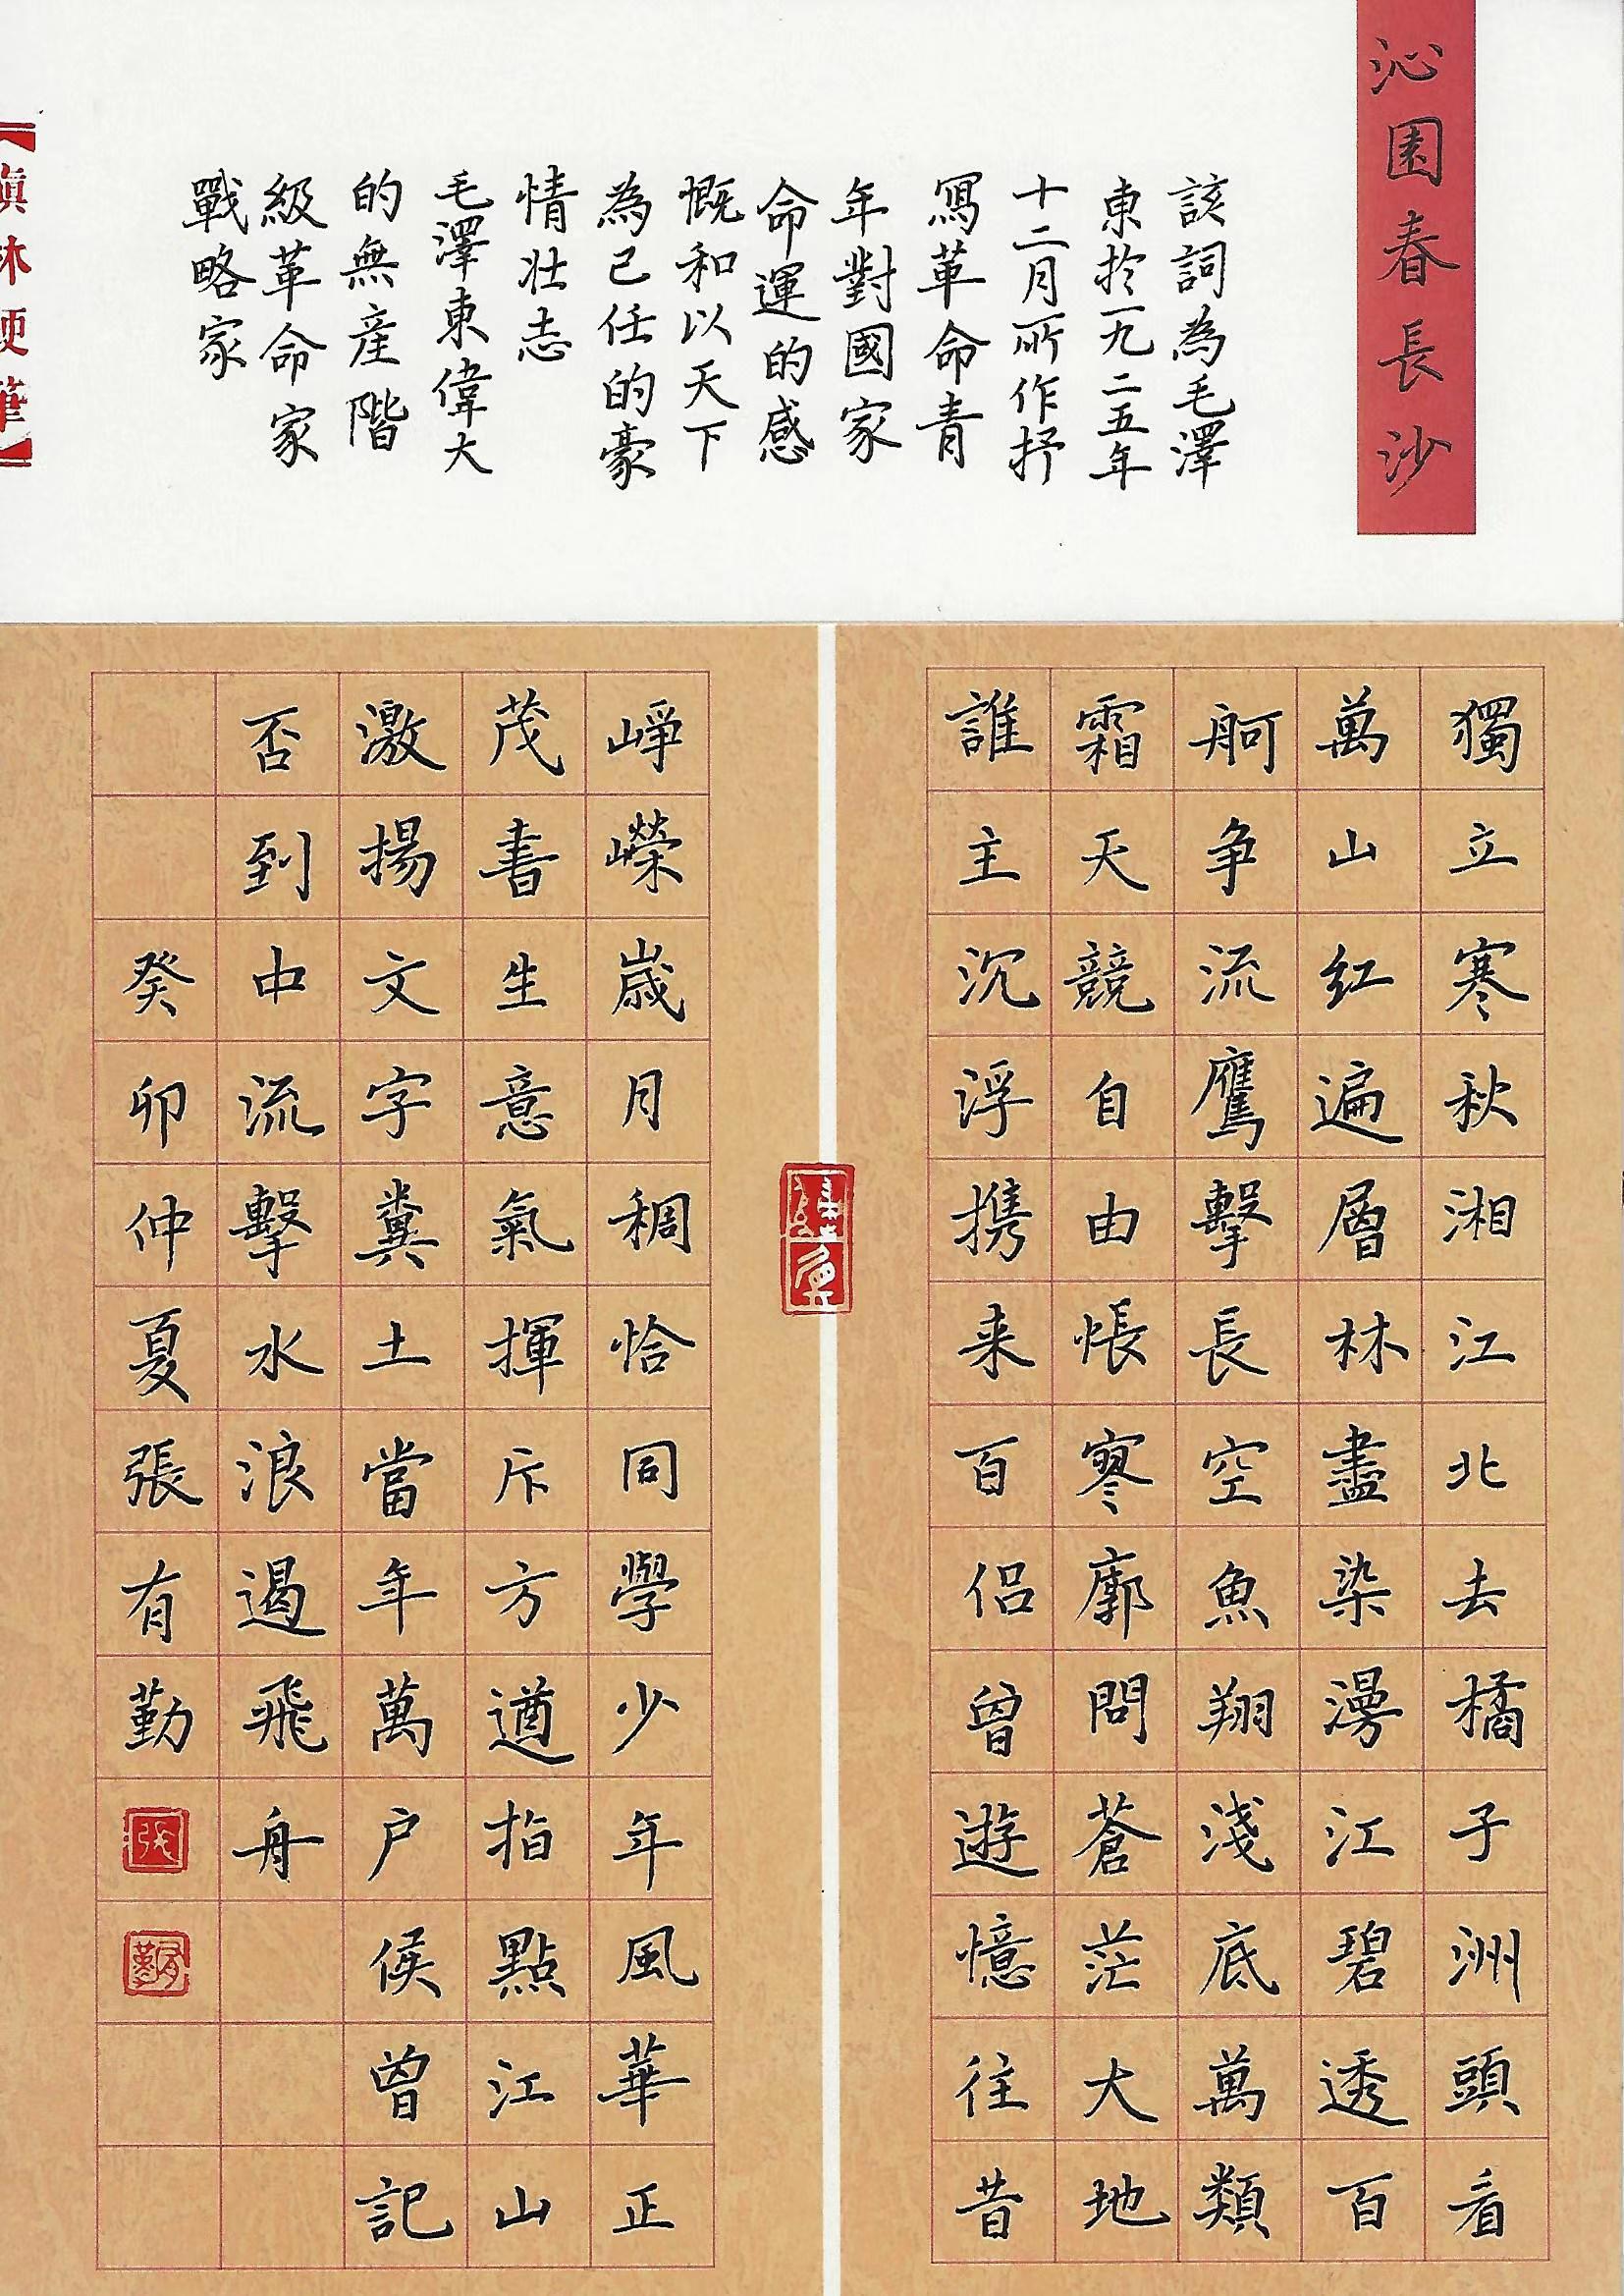 沁園春長沙
該詞為毛澤
東於一九二五年
十二月所作抒
寫革命青
年對國家
命運的感
慨和以天下
為己任的豪
情壯志
毛澤東偉大
的無産階
級革命家
戰略家
獨立寒秋湘江北去橘子洲頭看
萬山红遍層林盡染漫江碧透百
舸争流鷹擊長空魚翔淺底萬類
霜天競自由悵寥廓問蒼茫大地
誰主沉浮携来百侣曾遊憶往昔
崢嶸歲月稠恰同學少年風華正
茂書生意氣揮斥方遒指點江山
激揚文字糞土當年萬户侯曾記
否到中流擊水浪遏飛舟
癸卯仲夏張有勤
張
有勤